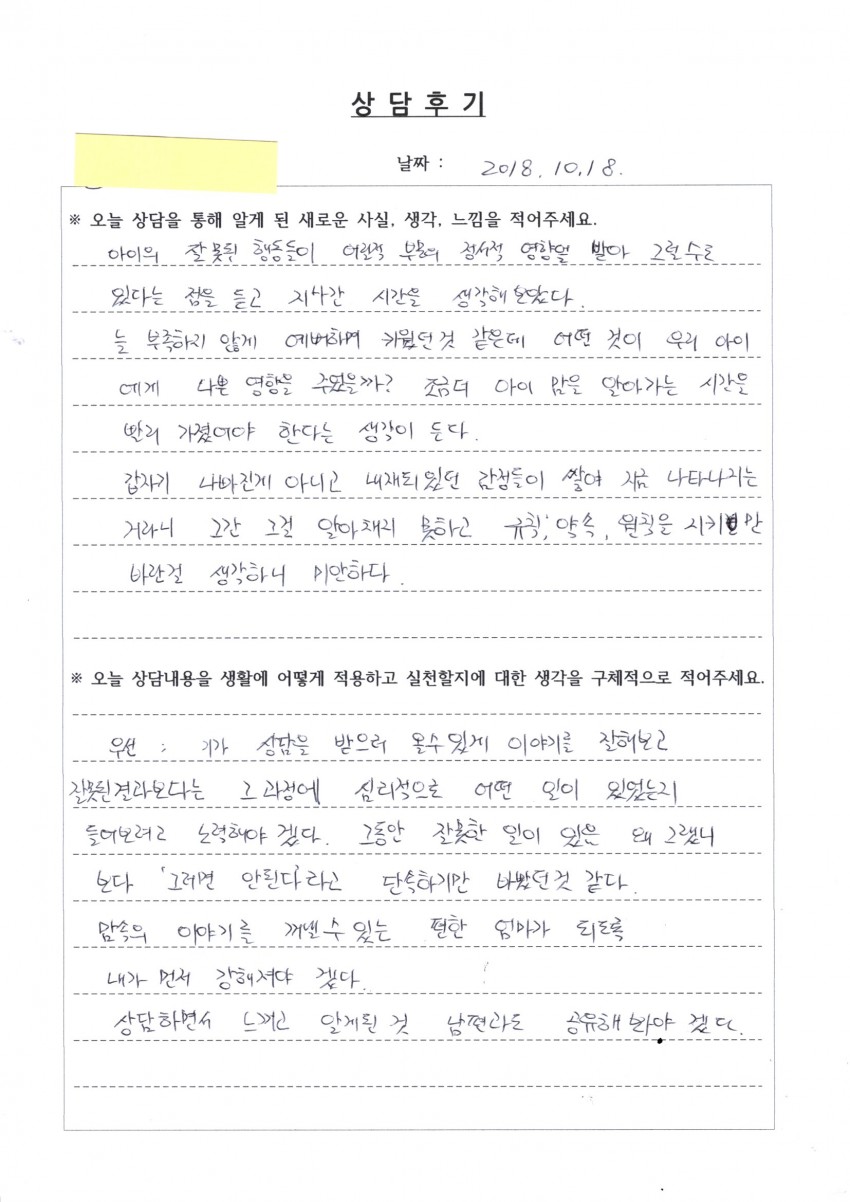 상 담 후 기
날짜 : 2018. 10. 18.
※ 오늘 상담을 통해 알게 된 새로운 사실, 생각, 느낌을 적어주세요.
아이의 잘못된 행동들이 어린적 부모의 정서적 영향을 받아 그럴수도
있다는 점을 듣고 지나간 시간을 생각해 보았다.
늘 부족하지 않게 예뻐하며 키웠던것 같은데 어떤 것이 우리 아이
에게 나쁜 영향을 주었을까? 조금더 아이 맘을 알아가는 시간을
빨리 가졌어야 한다는 생각이 든다.
갑자기 나빠진게 아니고 내재되있던 감정들이 쌓여 지금 나타나지는
거라니 그간 그걸 알아채지 못하고 규칙, 약속, 원칙을 시키기만
바란걸 생각하니 미안하다.
※ 오늘 상담내용을 생활에 어떻게 적용하고 실천할지에 대한 생각을 구체적으로 적어주세요.
우선 : 상담을 받으러 올수있게 이야기를 잘해보고
잘못된결과보다는 그 과정에 심리적으로 어떤 일이 있었는지
들어보려고 노력해야 겠다. 그동안 잘못한 일이 있은 왜 그랬니
보다 '그러면 안된다'라고 단속하기만 바빴던것 같다.
맘속의 이야기를 꺼낼수 있는 편한 엄마가 되도록
내가 먼저 강해져야 겠다.
상담하면서 느끼고 알게된 것 남편과도 공유해 봐야 겠다.